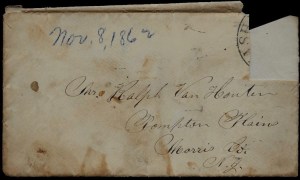 Nov. 8, 1862
Mrs. Ralph Van Houten
Pompton Plain
Morris Co.
N.J.